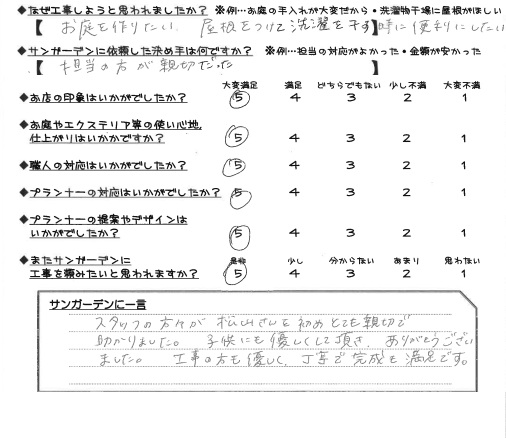 ◆なぜ工事しようと思われましたか? ※例…お庭の手入れが大変だから・洗濯物干場に屋根がほしい
【お庭を作りたい、屋根をつけて洗濯を干す】時に便利にしたい
◆サンガーデンに依頼した決め手は何ですか? ※例…担当の対応がよかった・金額が安かった
【担当の方が親切だった】
大変満足 満足 どちらでもない 少し不満 大変不満
◆お店の印象はいかがでしたか? 5 4 3 2 1
◆お庭やエクステリア等の使い心地、
仕上がりはいかがですか? 5 4 3 2 1
◆職人の対応はいかがでしたか? 5 4 3 2 1
◆プランナーの対応はいかがでしたか? 5 4 3 2 1
◆プランナーの提案やデザインは
いかがでしたか? 5 4 3 2 1
◆またサンガーデンに 是非 少し 分からない あまり 思わない
工事を頼みたいと思われますか? 5 4 3 2 1
サンガーデンに一言
スタッフの方々が松山さんを初めとても親切で
助かりました。子供にも優しくして頂き、ありがとうござい
ました。工事の方も優しく、丁寧で完成も満足です。